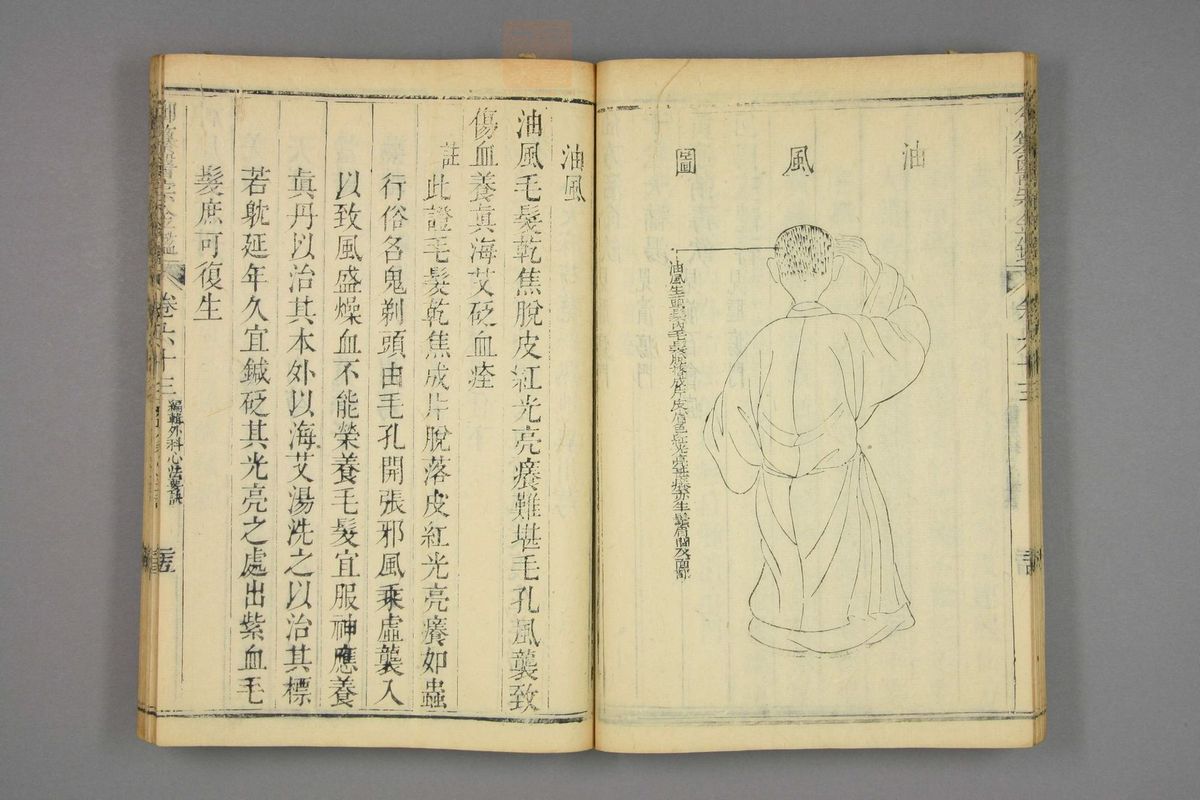 油風圖
油風生頭髮內毛髮脫落成片皮膚色紅光亮癢亦生鬚眉間及面部
油風
油風毛髮乾焦脫皮紅光亮癢難堪毛孔風襲致
傷血養眞海艾砭血痊
註此證毛髮乾焦成片脫落皮紅光亮癢如蟲
行俗名鬼剃頭由毛孔開張邪風乘虛襲入
以致風盛燥血不能榮養毛髮宜服神應養
眞丹以治其本外以海艾湯洗之以治其標
若躭延年久宜鍼砭其光亮之處出紫血毛
髮庶可復生
卷六十三
編輯外科心法要訣